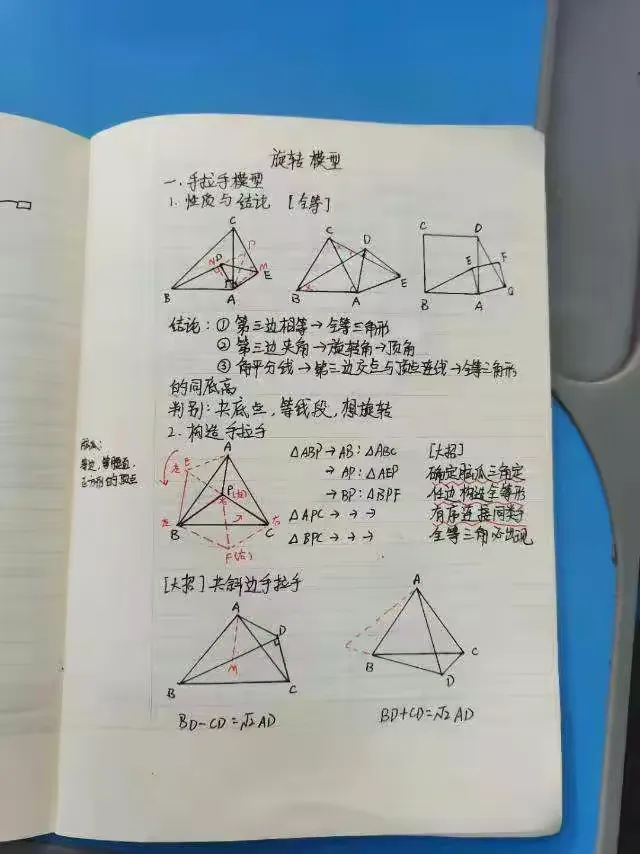 旋转模型
一.手拉手模型
1.性质与结论 [全等]
C D P M E B A
C D B A E
C D E F B A G
结论:①第三边相等→全等三角形
②第三边夹角→旋转角→顶角
③角平分线→第三边交点与顶点连线→全等三角形
的同底高
判别:共底点,等线段,想旋转
2.构造手拉手
等边,等腰直,
正方形的顶点
A E 左 P B 左 C 右 F(右)
△ABP→AB:△ABC [大招]
→AP:△AEP 确定脑瓜三角定
→BP:△BPF 任边构造全等形
△APC→ → → 有序连接同类子
△BPC→ → → 全等三角必出现
[大招]共斜边手拉手
A D M B C
A B C D
BD-CD=√2AD
BD+CD=√2AD